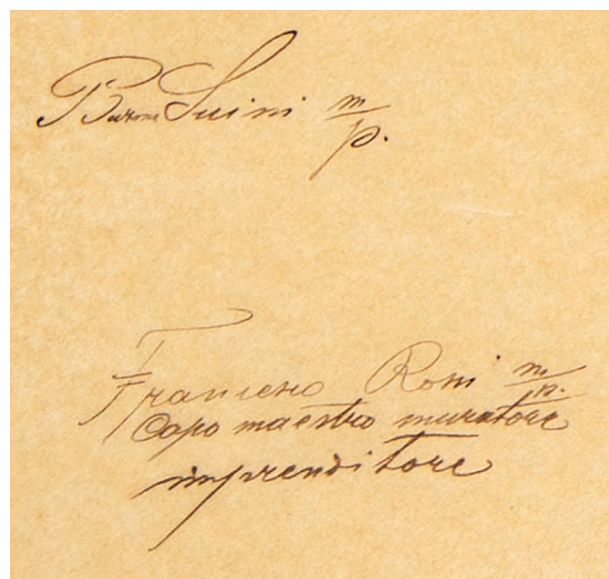 Barone Suini m/p.
Francesco Roni m/p.
Capo maestro muratore
imprenditore